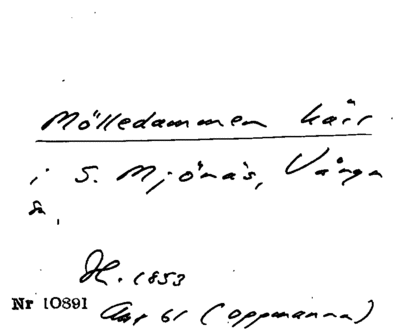 Mölledammen kärr
i S. Mjönäs, Vånga
sn.
H. 1853
Nr 10891
61 (Oppmanna)